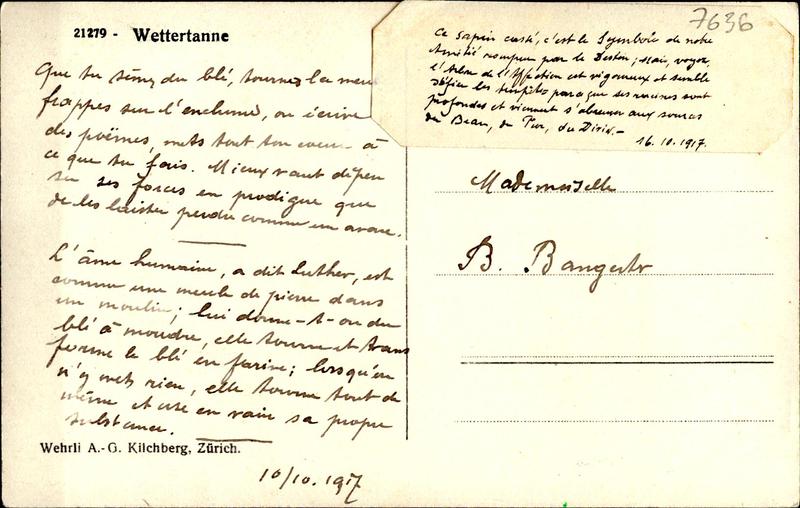 21279 - Wettertanne
7636
Que tu sèmes du blé, tournes la meule
frappes sur l'enclume, ou écrive
des poèmes, mets tout ton coeur à
ce que tu fais. Mieux vaut dépen
ser ses forces en prodigue que
de les laisser perdre comme un avare.
L'âme humaine, a dit Luther, est
comme une meule de pierre dans
un moulin; lui donne-t-on du
blé à moudre, elle tourne et trans
forme le blé en farine; lorsqu'on
n'y mets rien, elle tourne tout de
même et use en vain sa propre
substance.
Wehrli A.-G. Kilchberg, Zürich.
10/10. 1917
Ce sapin cassé, c'est le Symbole de notre
Amitié rompue par le Destin; mais, voyez,
l'Arbre de l'Affection est vigoureux et semble
défier les tempêtes parce que ses racines sont
profondes et viennent s'abreuver aux sources
du Beau, du Pur, du Divin.-
16.10.1917.
Mademoiselle
B. Bangerter